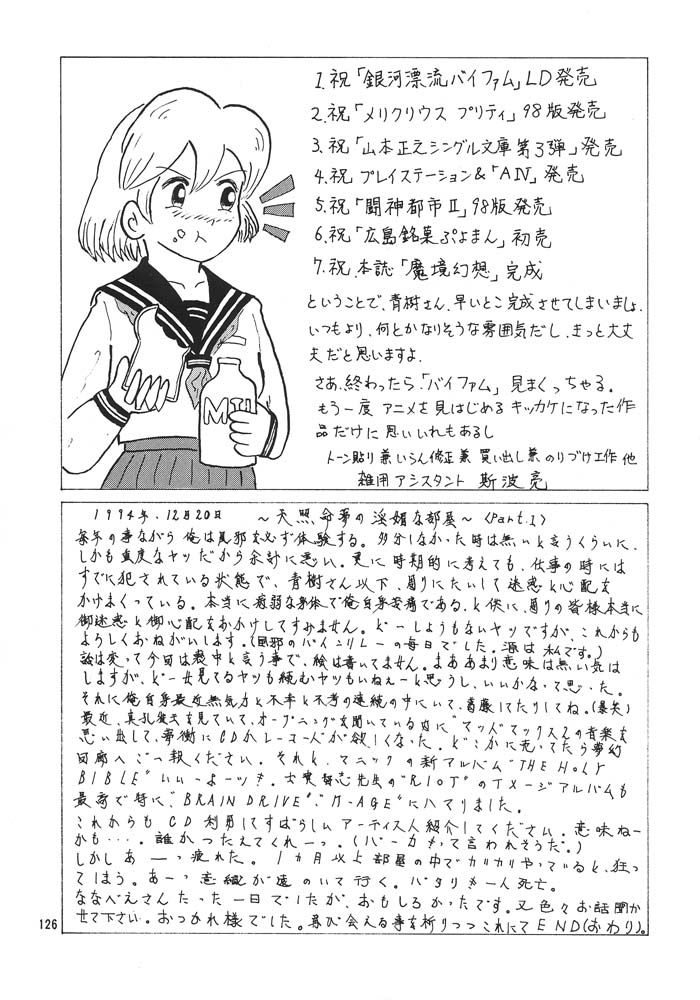 1.祝「銀河漂流バイファム」LD発売
2.祝「メリクリウス プリティ」98版発売
3.祝「山本正之シングル文庫第3弾」発売
4.祝 プレイステーション&「AIV」発売
5.祝「闘神都市Ⅱ」98版発売
6.祝「広島銘菓ぷよまん」初売
7.祝.本誌「魔境幻想」完成
ということで、青樹さん、早いとこ完成させてしまいましょ.
いつもより、何とかなりそうな雰囲気だし、きっと大丈
夫だと思いますよ.
さあ、終わったら、「バイファム」見まくっちゃる。
もう一度アニメを見はじめるキッカケになった作
品だけに思いいれもあるし
トーン貼り兼いらん修正兼買い出し兼のりづけ工作他
雑用アシスタント 斯波亮
MIL
1994年.12月20日 ～天照命夢の淫媚な部屋～〈Part.1〉
毎年の事ながら俺は風邪を必ず体験する。多分しなかった時は無いと言うくらいに、
しかも重度なヤツだから余計に悪い。更に時期的に考えても、仕事の時には
すでに犯されている状態で、青樹さん以下、周りにたいして迷惑と心配を
かけまくっている。本当に病弱な身体で俺自身苦痛である、と供に、周りの皆様本当に
御迷惑と御心配をおかけしてすみません。どーしようもないヤツですが、これからも
よろしくおねがいします。(風邪のバイキンリレーの毎日でした。源は私です。)
話は変って今回は喪中と言う事で、絵は書いてません。まああまり意味は無い気は
しますが、どー見てるヤツも読むヤツもいねぇーと思うし、いいかなって思った。
それに俺自身最近無気力と不幸と不孝の連続の中にいて、葛藤してたりしてね。(爆笑)
最近、真孔雀王を見ていて、オープニングを聞いている内に"マッドマックス2の音楽を
思い出して、夢働にCDかレコー人が欲しくなった。どこかに売ってたら夢幻
回廊へご一報ください。それと、マニックの新アルバム"THE HOLY
BIBLE"いいっよーッ!。"RIOT"のイメージアルバムも
最高で特に、"BRAIN DRIVE""M-AGE"にハマりました。
これからもCD利用してすばらしいアーティス人紹介してください。意味ねー
かも…。誰かつたえてくれーっ。(バーカもって言われそうだ。)
しかしあーーっ疲れた。1カ月以上部屋の中でガリガリやっていると、狂っ
てしまう。あーっ意識が遠のいて行く。バタリも一人死亡。
ななべえさんたった一日でしたが、おもしろかったです。又色々お話聞か
せて下さい。おつかれ様でした。再び会える事を祈りつつこれにてEND(おわり)。
126